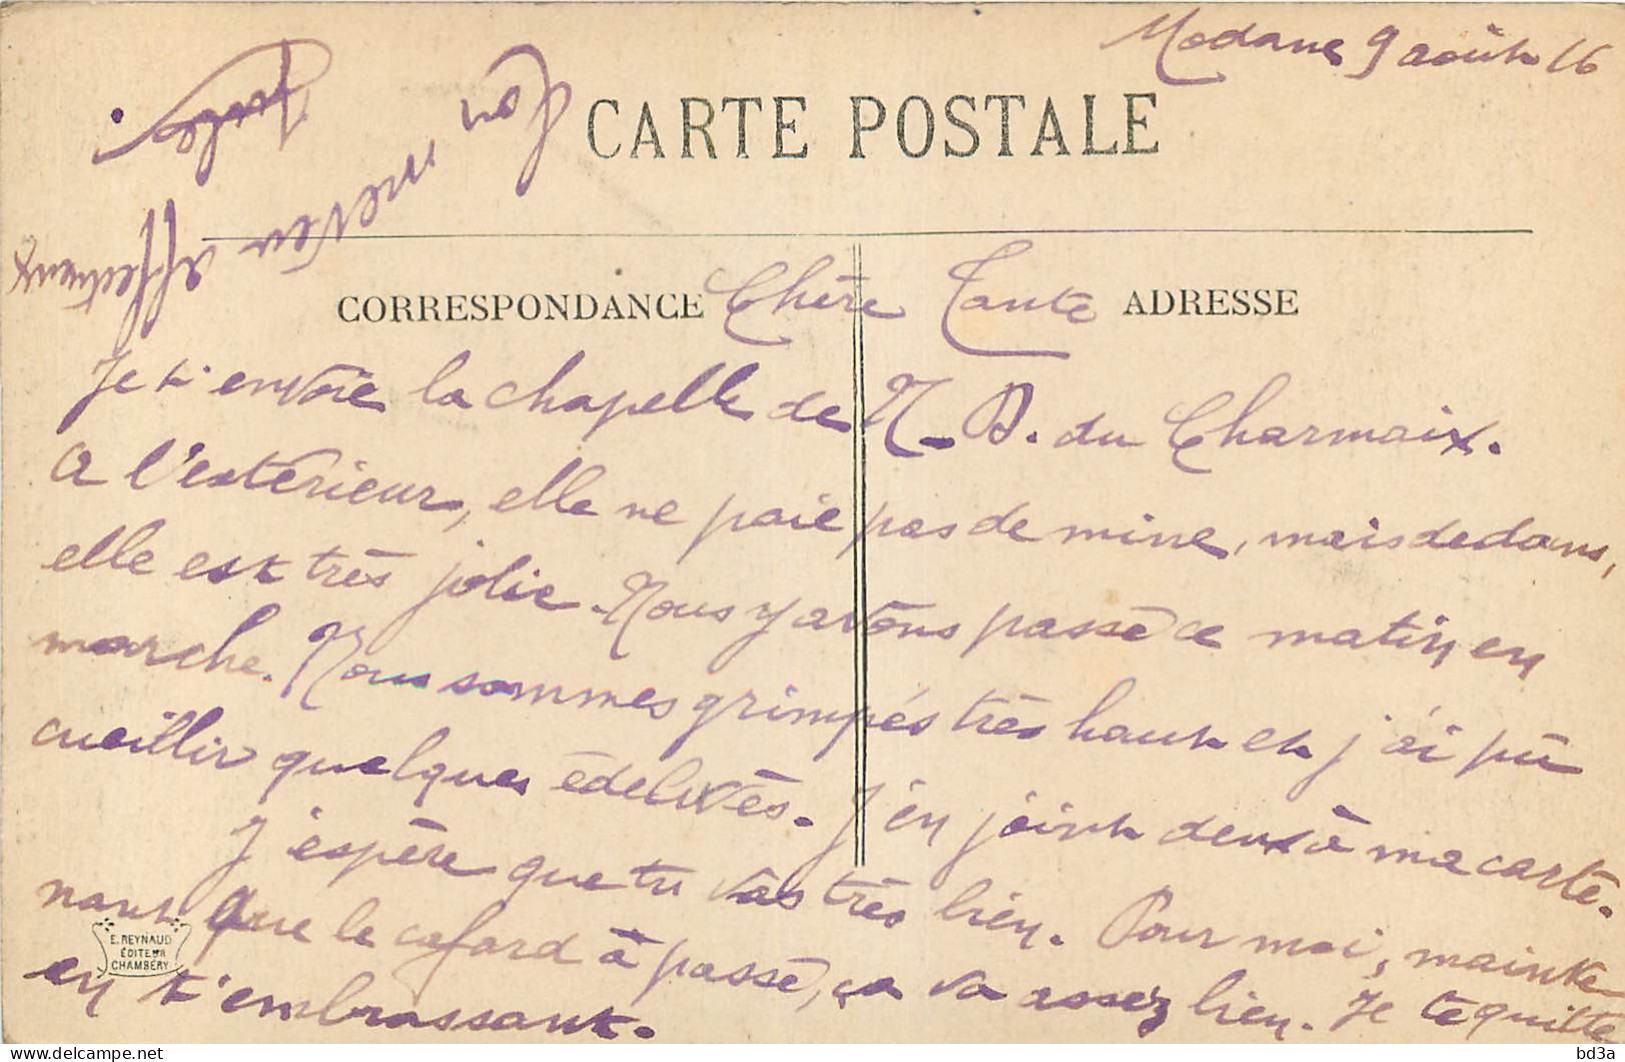 Modane 9 août 16
CARTE POSTALE
CORRESPONDANCE
ADRESSE
Chère Tante
Je t'envoie la chapelle de N.D. du Charmaix.
A l'extérieur, elle ne paie pas de mine, mais dedans,
elle est très jolie. Nous y avons passé ce matin en
marche. Nous sommes grimpés très haut et j'ai pû
cueillir quelques édelivès. J'en joint deux à ma carte.
J'espère que tu vas très bien. Pour moi, mainte-
nant que le cafard à passé, ça va assez bien. Je te quitte
en t'embrassant.
Ton
neveu
affectueux
Jules
E. REYNAUD
ÉDITEUR
CHAMBÉRY
delcampe.net
bd3a